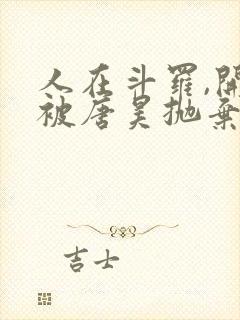 人在斗罗,開
被唐昊抛棄
吉士